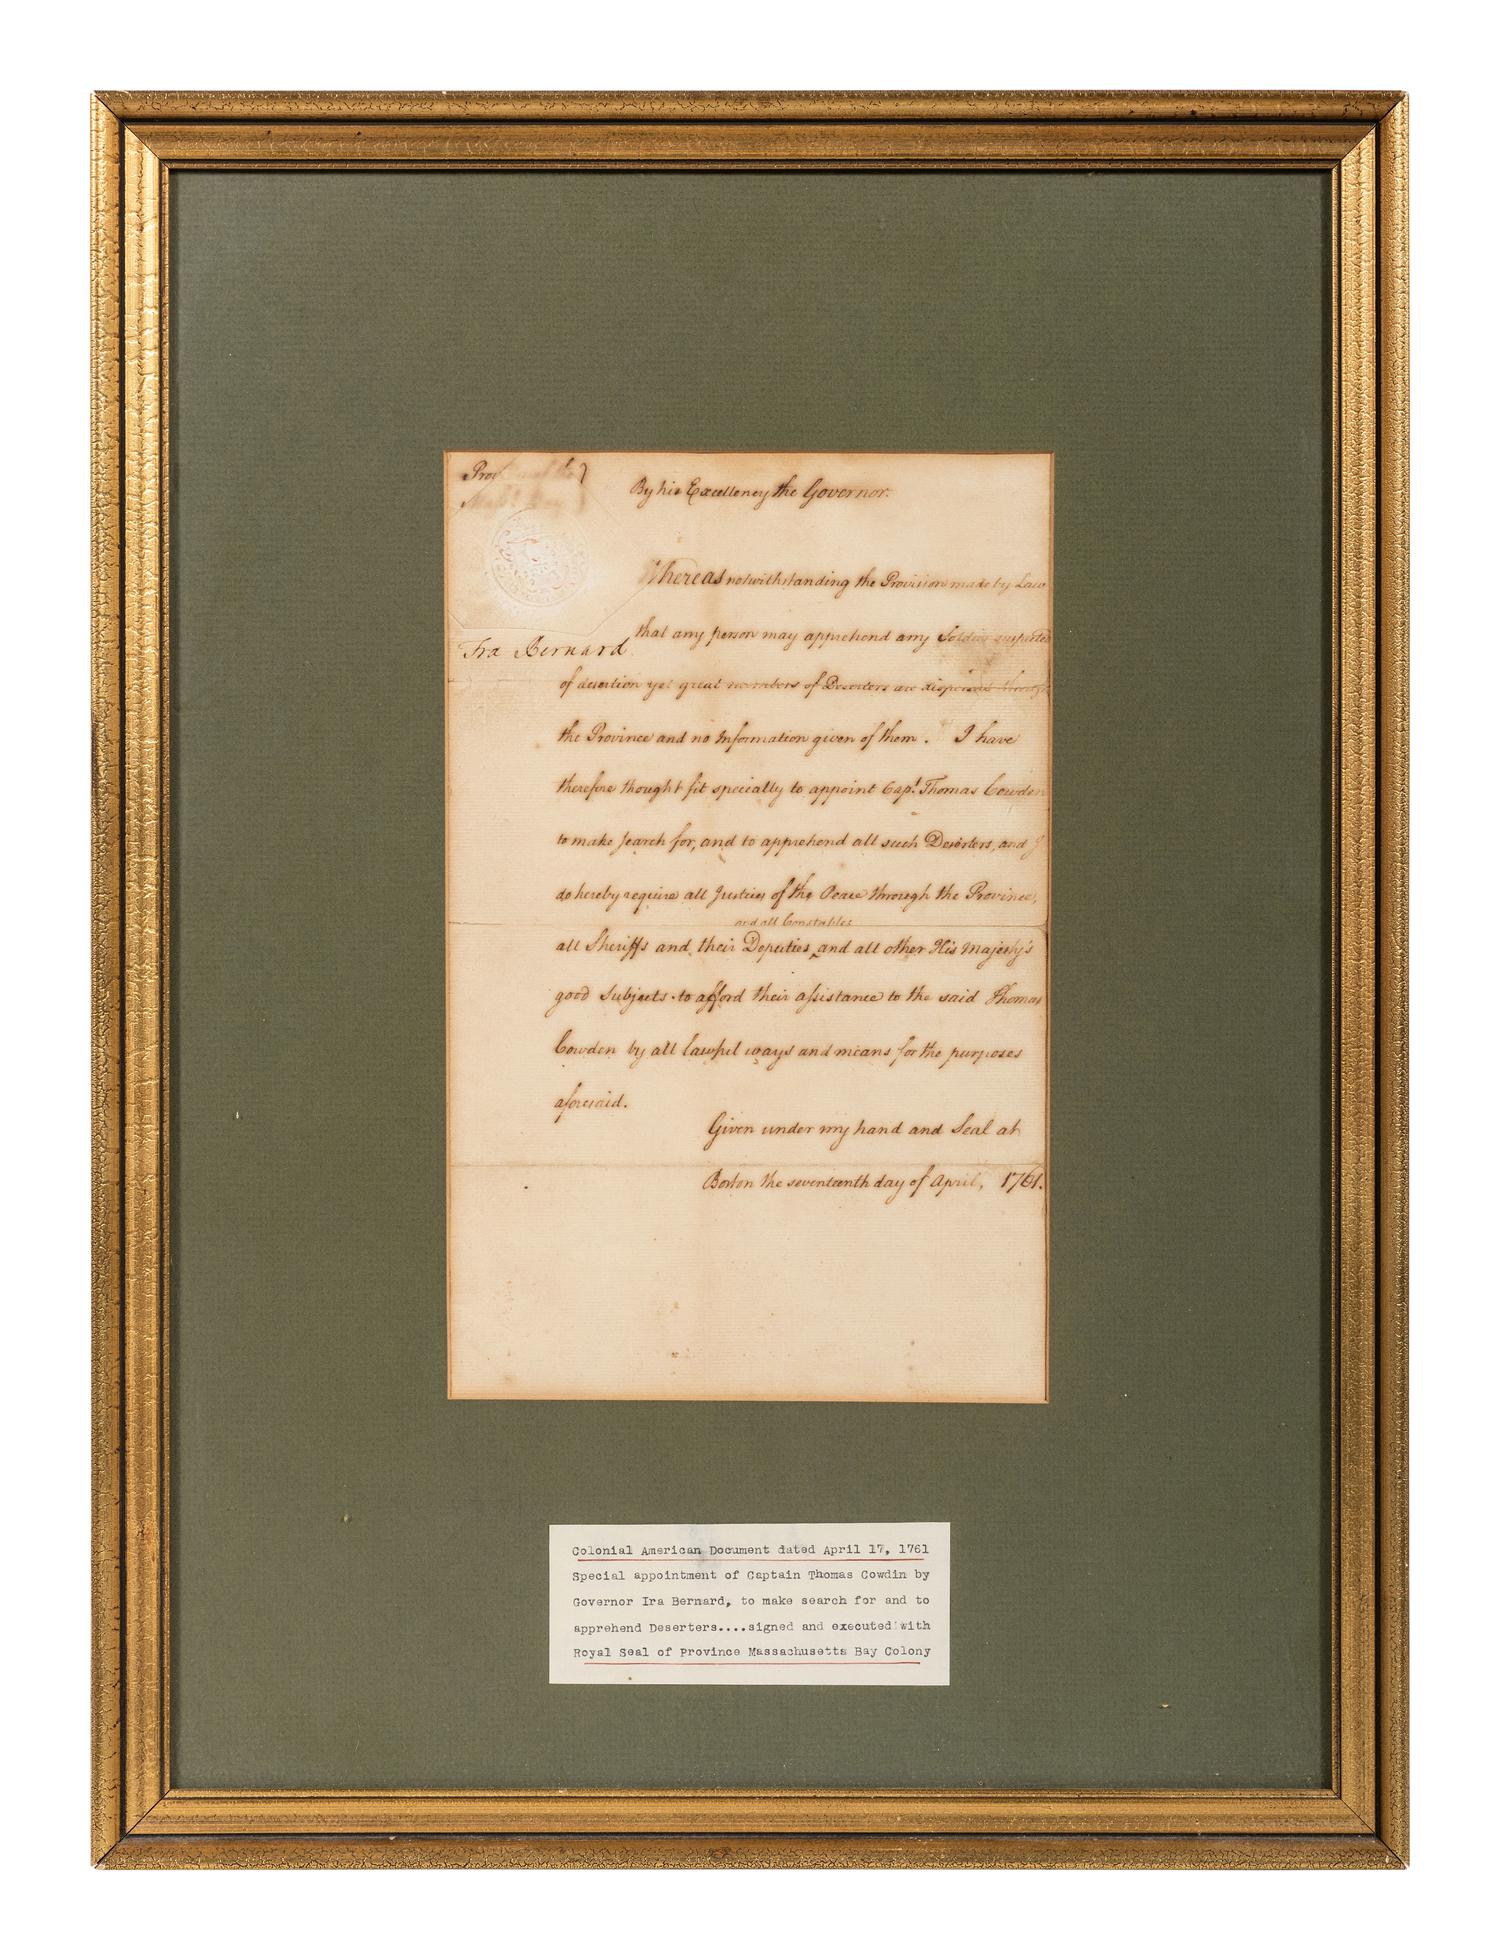 Prov
By his Excellency the Governor.
Whereas notwithstanding the Provision made by Law
that any person may apprehend any Soldier suspected
Fra Bernard
of desertion yet great numbers of Deserters are dispersed through
the Province and no Information given of them. I have
therefore thought fit specially to appoint Capt. Thomas Cowden
to make search for, and to apprehend all such Deserters, and I
do hereby require all Justices of the Peace through the Province,
and all Constables
all Sheriffs and their Deputies, and all other His Majesty's
good Subjects to afford their assistance to the said Thomas
Cowden by all lawful ways and means for the purposes
aforesaid.
Given under my hand and Seal at
Boston the seventeenth day of April, 1761.
Colonial American Document dated April 17, 1761
Special appointment of Captain Thomas Cowdin by
Governor Ira Bernard, to make search for and to
apprehend Deserters....signed and executed with
Royal Seal of Province Massachusetts Bay Colony